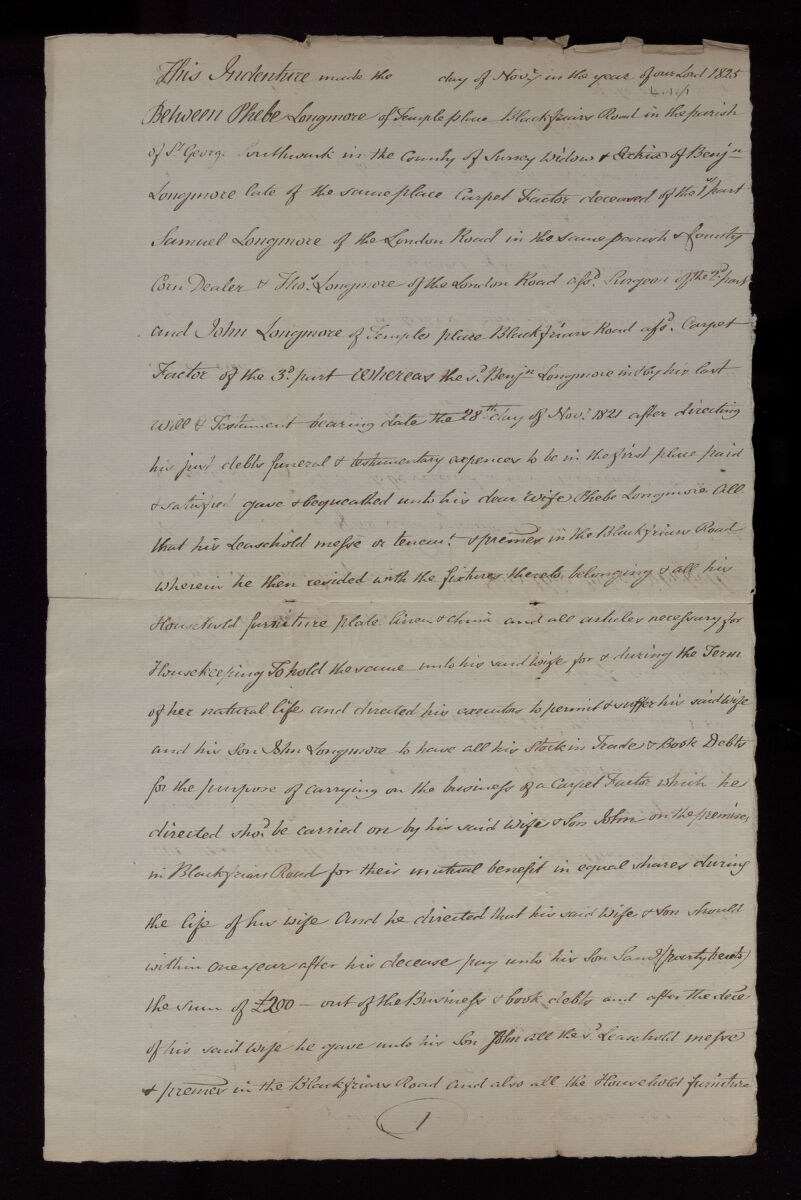 This Indenture made the day of Novr in the year of our Lord 1825
Between Phebe Longmore of Temple place Blackfriars Road in the parish
of St Georg Southwark in the County of Surrey Widow & Exhix of Benjn
Longmore late of the same place Carpet Factor deceased of the 1st part
Samuel Longmore of the London Road in the same parish & County
Corn Dealer & Thos Longmore of the London Road afsd Surgeon of the 2d part
and John Longmore of Temple place Blackfriars Road afsd. Carpet
Factor of the 3d. part Whereas the sd. Benjn Longmore in & by his last
Will & Testament bearing date the 28th day of Novr 1821 after directing
his just debts funeral & testamentary expences to be in the first place paid
& satisfied gave & bequeathed unto his dear wife Phebe Longmore All
that his Leasehold messe or tenemt. & premes in the Blackfriars Road
wherein he then resided with the fixtures thereto belonging & all his
Household furniture plate linen & china and all articles necessary for
Housekeeping To hold the same unto his said wife for & during the Term
of her natural life and directed his executors to permit & suffer his said wife
and his Son John Longmore to have all his Stock in Trade & Book Debts
for the purpose of carrying on the business of a Carpet Factor which he
directed shod. be carried on by his said Wife & Son John on the premises
in Blackfriars Road for their mutual benefit in equal shares during
the life of his wife And he directed that his said wife & son should
within one year after his decease pay unto his Son Saml (party hereto)
the sum of £200 — out of the Business & book debts and after the dece
of his said wife he gave unto his Son John all the sd. Leasehold messe
& premes in the Blackfriars Road and also all the Household furniture
1